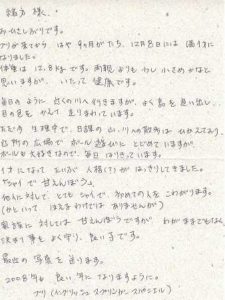 緒方 様、
おひさしぶりです。
ブリが来てから はや9ヶ月がたち、12月8日には満1才に
なりました。
体重は 12.8kgです。両親よりも 少し小さめかなと
思いますが、いたって健康です。
毎日のように 近くの川へ行きますが、よく鳥を追い出し、
目の色をかえて 走りまわっています。
ただ今 生理中で、日課の山、川への散歩はひかえており、
近所の広場で ボール遊びに とどめていますが、
ボールも大好きなので、毎日 はりきっています。
1才になって というか 人格(?)が はっきりしてきました。
"シャイで 甘えんぼう"。
他人に対して とてもシャイで、初めての人を こわがります。
(かといって ほえるわけでは ありませんが)
家族に対しては 甘えんぼうですが わがままでもなく
決まり事を よく守り、良い子です。
最近の 写真を 送ります。
2008年も 良い 年に なりますように。
ブリ (イングリッシュ スプリンガー スパニエル)